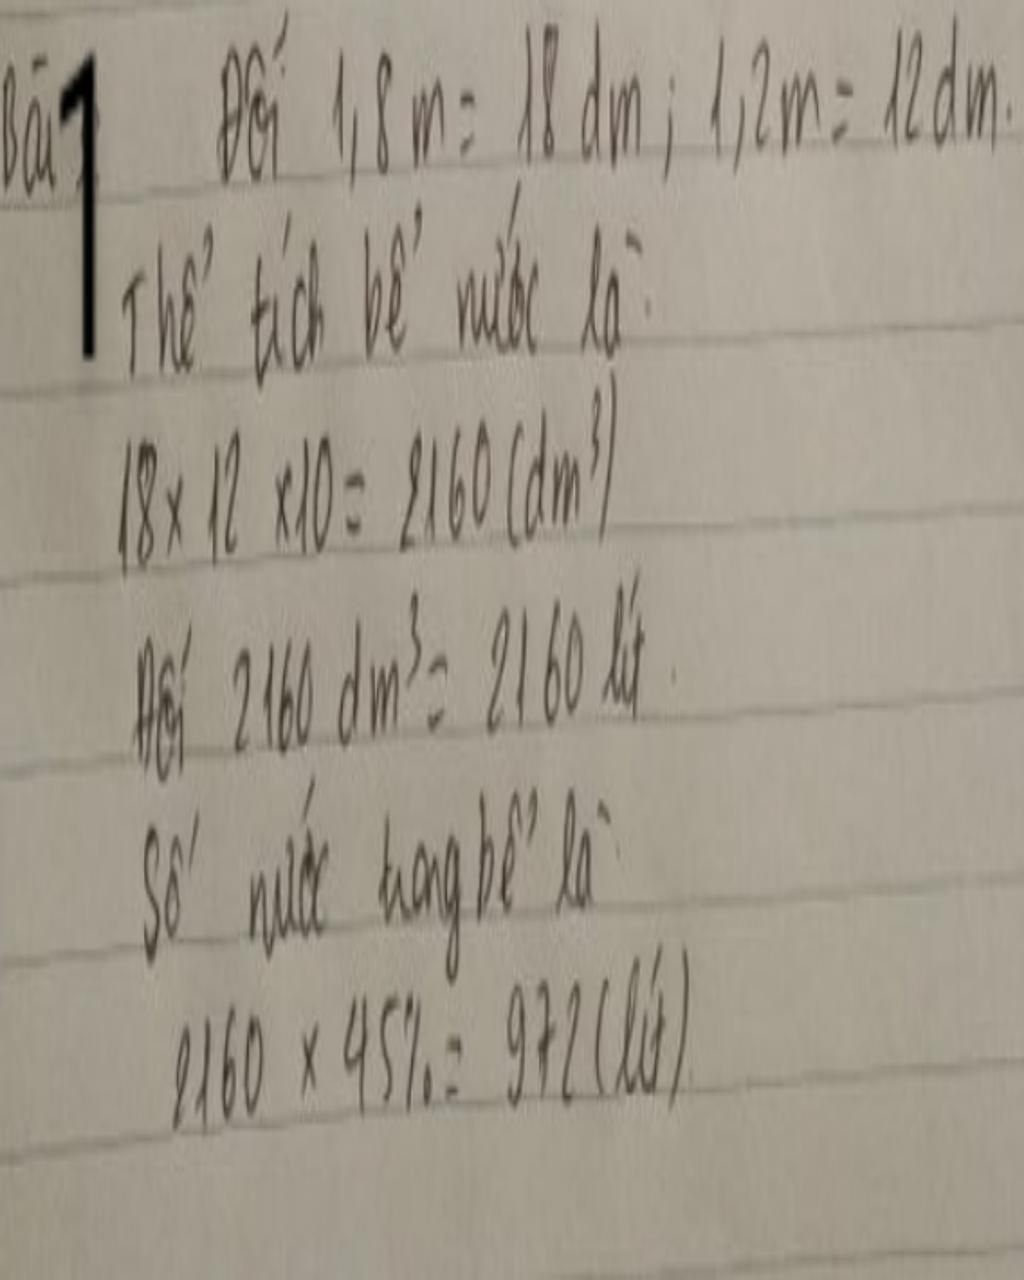 Bài 1 Đổi 1,8 m = 18 dm ; 1,2 m = 12 dm.
Thể tích bể nước là
18 x 12 x 10 = 2160 (dm³)
Đổi 2160 dm³ = 2160 lít.
Số nước trong bể là
2160 x 45% = 972 (lít)